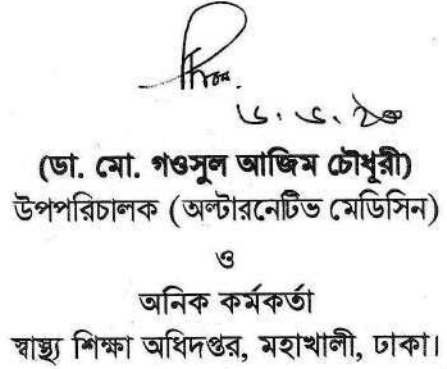 (ডা. মো. গওসুল আজিম চৌধুরী)
উপপরিচালক (অল্টারনেটিভ মেডিসিন)
ও
অনিক কর্মকর্তা
স্বাস্থ্য শিক্ষা অধিদপ্তর, মহাখালী, ঢাকা।